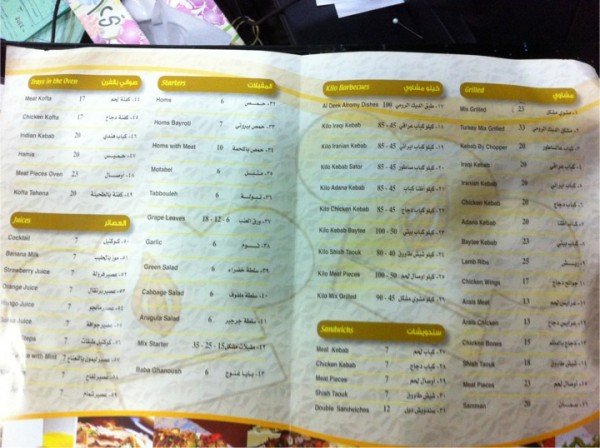 Trays in the Oven صواني بالفرن
Meat Kofta 17 ٤٤- كفتة لحم
Chicken Kofta 17 كفتة دجاج
Indian Kebab 20 كباب هندي
Hamis 20 حميس
Meat Pieces Oven 23 أوصال
Kofta Tahena 20 ٤٩- كفتة بالطحينة
Juices العصائر
Cocktail 7 ٥٠- كوكتيل
Banana Milk 7 ٥١- موز بالحليب
Strawberry Juice 7 ٥٢- عصير فرولة
Orange Juice 7 ٥٣- عصير برتقال
Mango Juice 7 عصير مانجو
Juice 7 عصير جوافة
Steps 7 كوكتيل طبقات
with Mint 7 عصير ليمون بالنعناع
7 عصير تفاح
7 عصير
Starters المقبلات
Homs 6 ٣١- حمص
Homs Bayroti 7 ٣٢- حمص بيروتي
Homs with Meat 10 ٣٣- حمص باللحمة
Motabel 6 متبل
Tabbouleh 6 تبولة
Grape Leaves 18 - 12 - 6 ورق العنب
Garlic 6 ٣٨- ثوم
Green Salad 6 ٣٩- سلطة خضراء
Cabbage Salad 6 ٤٠- سلطة ملفوف
Arugula Salad 6 ٤١- سلطة جرجير
Mix Starter 35 - 25 - 15 ٤٢- مقبلات مشكل
Baba Ghanoush 6 ٤٣- بابا غنوج
Kilo Barbecues كيلو مشاوي
Al Deek Alromy Dishes 100 طبق الديك الرومي
Kilo Iraqi Kebab 85 - 45 كيلو كباب عراقي
Kilo Iranian Kebab 85 - 45 كيلو كباب ايراني
Kilo Kebab Sator 85 - 45 كيلو كباب ساطور
Kilo Adana Kebab 85 - 45 كيلو كباب اضنا
Kilo Chicken Kebab 85 - 45 كيلو كباب دجاج
Kilo Baytee Kebab 100 - 50 كيلو كباب بيتي
Kilo Shish Taouk 80 - 40 كيلو شيش طاووق
Kilo Meat Pieces 100 - 50 كيلو أوصال لحم
Kilo Mix Grilled 90 - 45 كيلو مشوي مشكل
Sandwichs سندويشات
Meat Kebab 7 كباب لحم
Chicken Kebab 7 كباب دجاج
Meat Pieces 7 أوصال لحم
Shish Taouk 7 شيش طاووق
Double Sandwiches 12 سندويش دبل
Grilled مشاوي
Mix Grilled 23 ١- مشوي مشكل
Turkey Mix Grilled 33 ٢- مشكل الديك الرومي
Kebab By Chopper 20 ٣- كباب بالساطور
Iraqi Kebab 20 ٤- كباب عراقي
Iranian Kebab 20 ٥- كباب ايراني
Chicken Kebab 20 ٦- كباب دجاج
Adana Kebab 20 ٧- كباب اضنا
Baytee Kebab 23 ٨- كباب بيتي
Lamb Ribs 25 ريش
Chicken Wings 17 جوانح دجاج
Arais Meat 13 عرايس لحم
Arais Chicken 13 عرايس دجاج
Chicken Bones 15 دجاج بالعظم
Shish Taouk 18 شيش طاووق
Meat Pieces 23 أوصال لحم
Samman 20 سمان